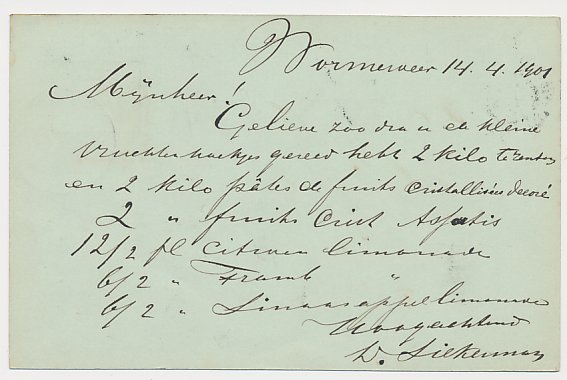 Wormerveer 14.4.1901
Mijnheer!
Gelieve zoodra u de kleine
vruchtenhoekjes gereed hebt 2 kilo te zenden
en 2 kilo pâtes de fruits cristallisées decoré
2 " fruits Crist
12/2 fl Citroen limonade
6/2 " Framb "
6/2 " Sinaasappellimonade
Hoogachtend